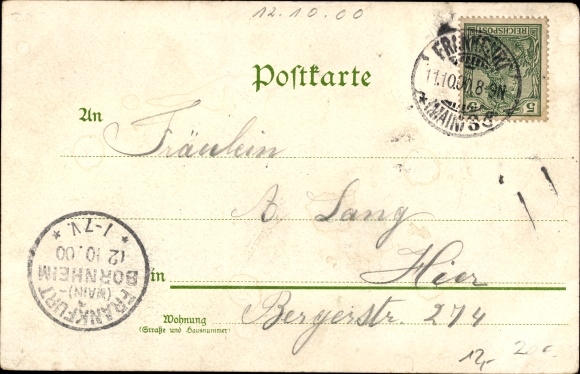 12.10.00
Postkarte
REICHSPOST
5
FRANKFURT
11.10.00. 8-9N
* (MAIN) *
An
Fräulein
A. Lang
in Hier
Wohnung
(Straße und Hausnummer)
Bergerstr. 274
FRANKFURT
(MAIN)-
BORNHEIM
12.10.00
* 1-7V. *
12,-